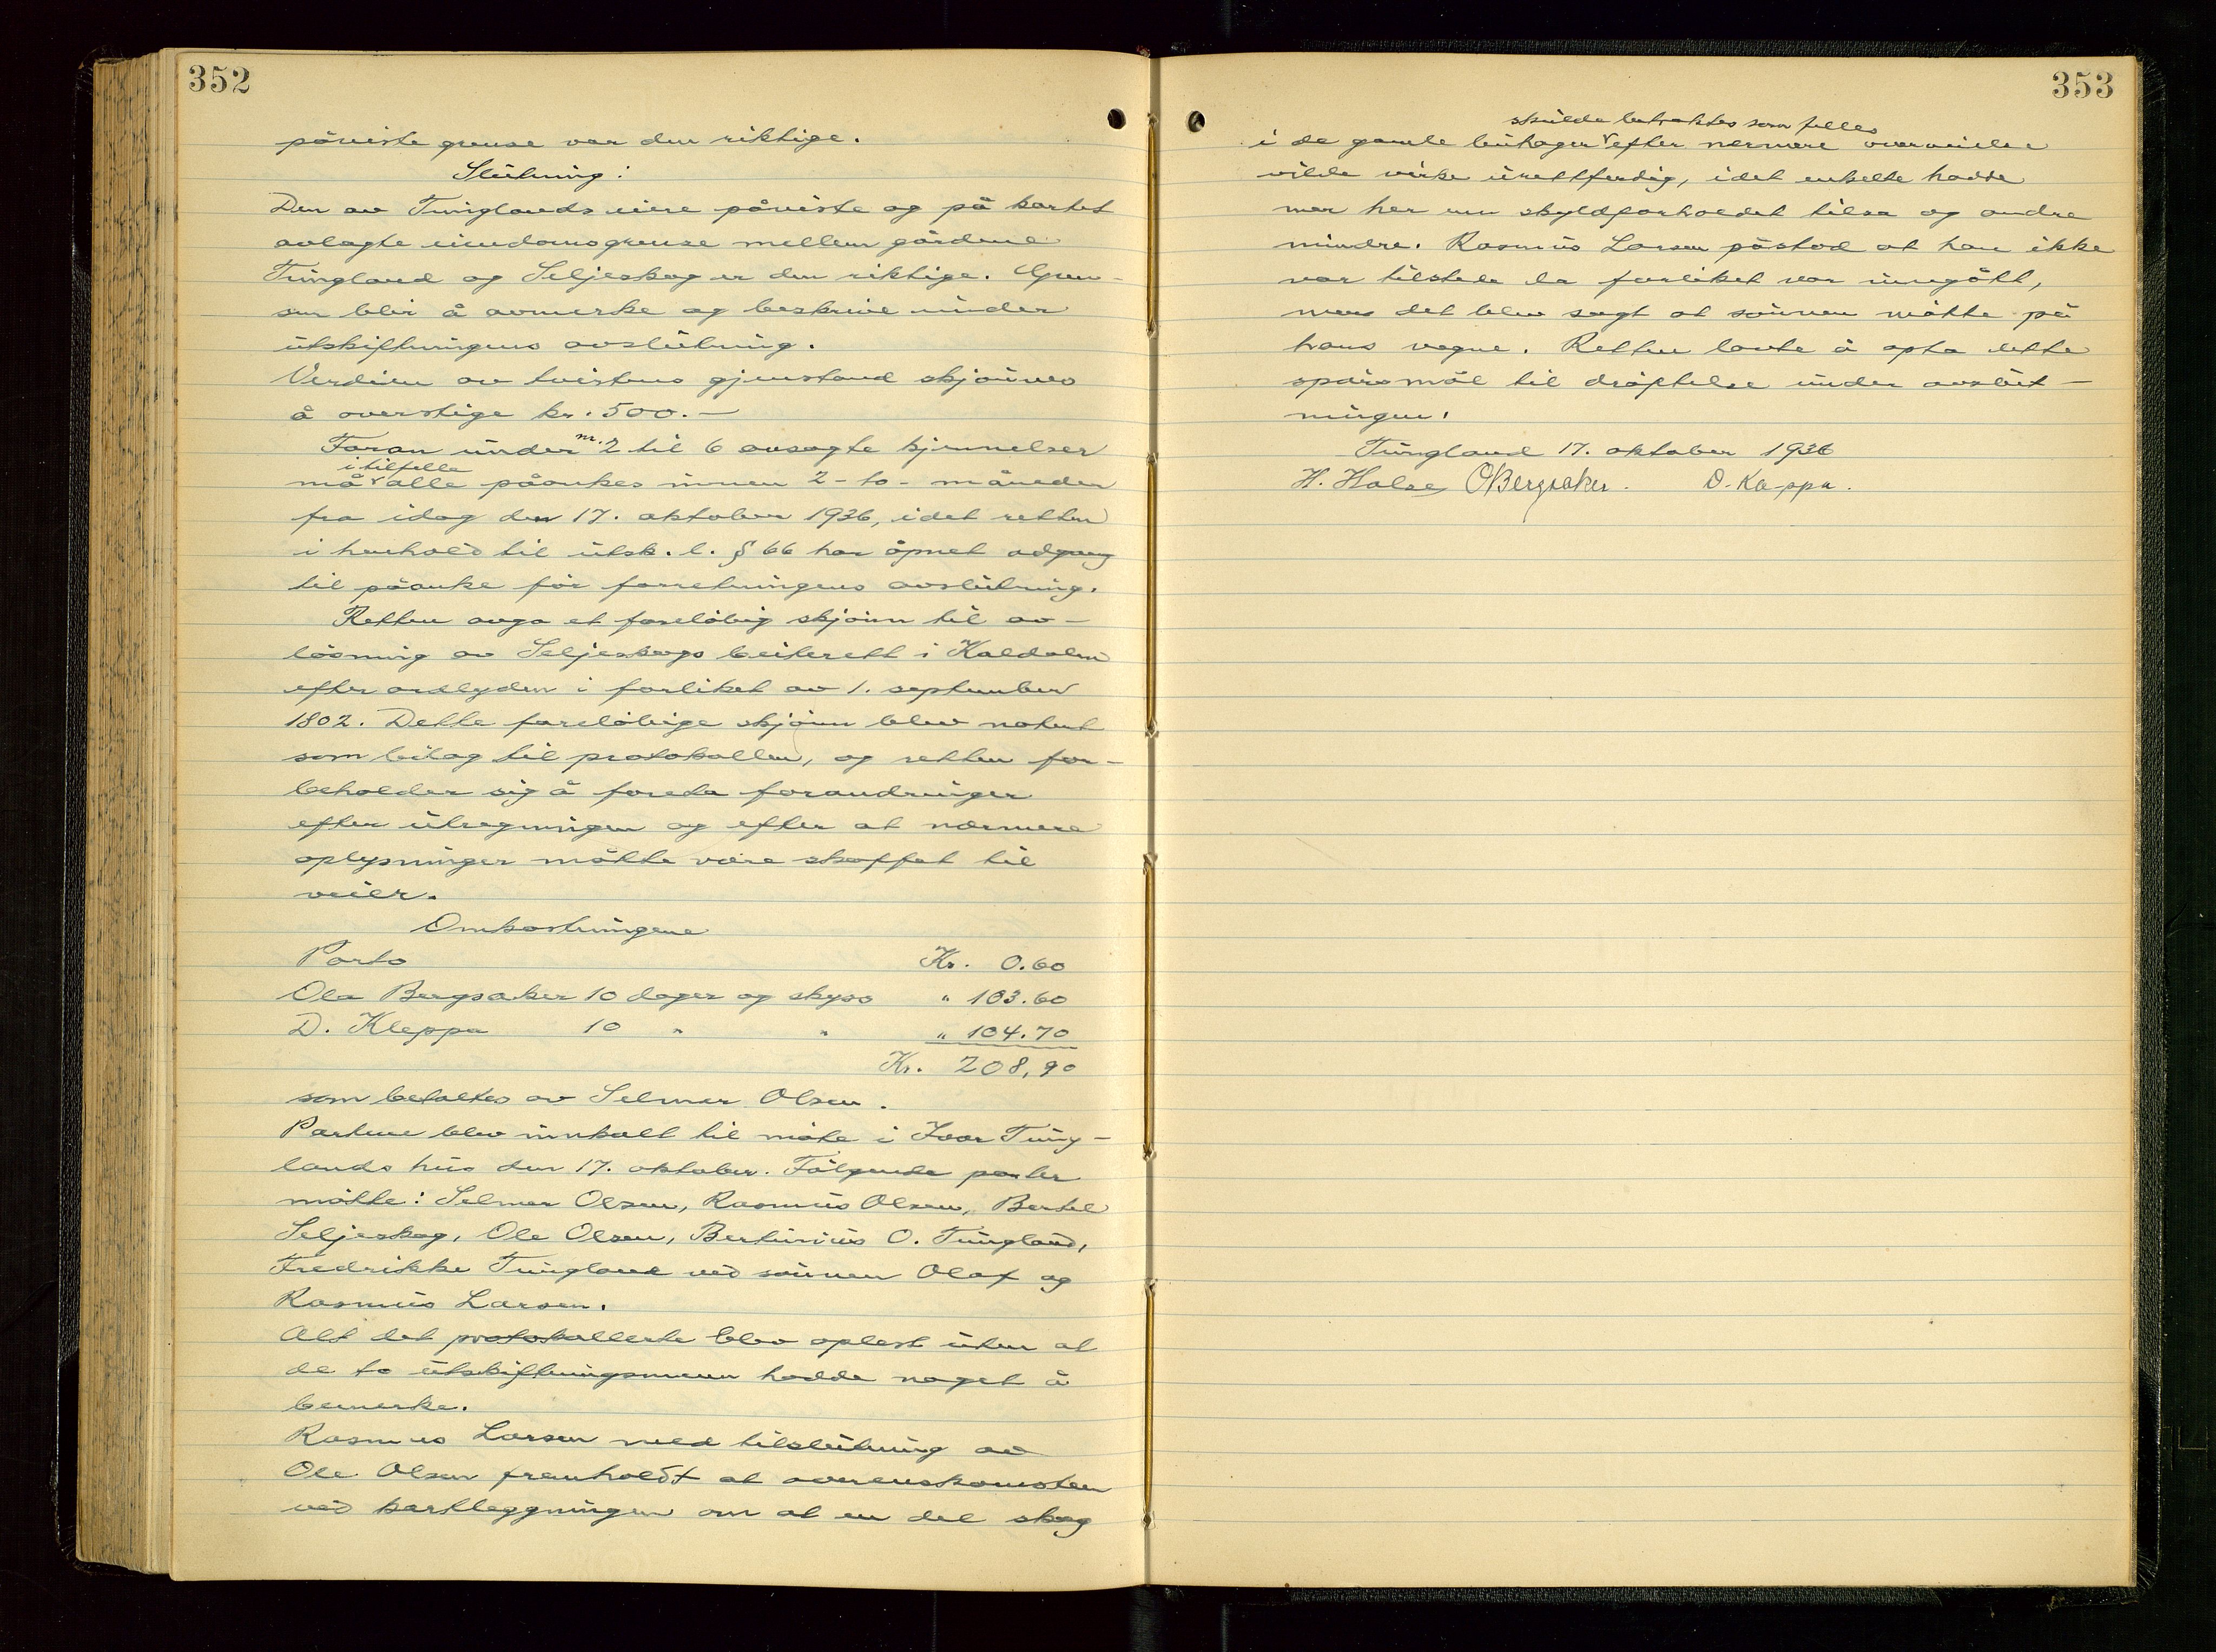 352
påviste grense var den riktige.
Slutning:
Den av Tunglands eiere påviste og på kartet
avlagte eiendomsgrense mellem gårdene
Tungland og Seljeskog er den riktige. Gren-
sen blir å avmerke og beskrive under
utskiftningens avslutning.
Verdien av tvistens gjenstand skjønnes
å overstige kr. 500.-
Foran under nr. 2 til 6 avsagte kjennelser
må i tilfelle alle påankes innen 2 - to - måneder
fra idag den 17. oktober 1936, idet retten
i henhold til utsk. l. § 66 har åpnet adgang
til påanke før forretningens avslutning.
Retten avga et foreløbig skjønn til av-
løsning av Seljeskogs beiterett i Kaldalen
efter ordlyden i forliket av 1. september
1802. Dette foreløbige skjønn blev notert
som bilag til protokollen, og retten for-
beholder sig å foreta forandringer
efter utregningen og efter at nærmere
oplysninger måtte være skaffet til
veier.
Omkostningene
Porto Kr. 0.60
Ola Bergsaker 10 dager og skyss " 103.60
D. Kleppa 10 " " " 104.70
Kr. 208,90
som betaltes av Selmer Olsen.
Partene blev innkalt til møte i Ivar Tung-
lands hus den 17. oktober. Følgende parter
møtte: Selmer Olsen, Rasmus Olsen, Bertel
Seljeskog, Ole Olsen, Bertinius O. Tungland,
Fredrikke Tungland ved sønnen Olaf og
Rasmus Larsen.
Alt det protokollerte blev oplest uten at
de to utskiftningsmenn hadde noget å
bemerke.
Rasmus Larsen med tilslutning av
Ole Olsen fremholdt at overenskomsten
ved kartleggningen om at en del skog
353
skulde betraktes som felles
i de gamle buhager efter nærmere overveielse
vilde virke urettferdig, idet enkelte hadde
mer her enn skyldforholdet tilsa og andre
mindre. Rasmus Larsen påstod at han ikke
var tilstede da forliket var inngått,
mens det blev sagt at sønnen møtte på
hans vegne. Retten lovte å opta dette
spørsmål til drøftelse under avslut-
ningen.
Tungland 17. oktober 1936
H. Halse OBergsaker. D. Kleppa.